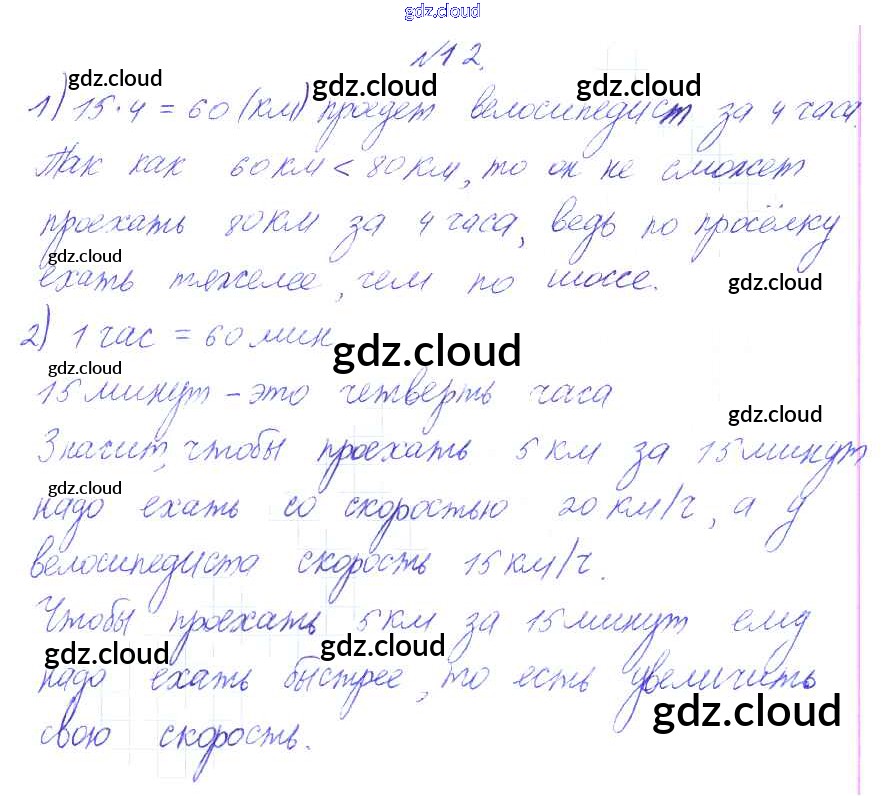 gdz.cloud
№12.
gdz.cloud
gdz.cloud
gdz.cloud
1) 15·4 = 60 (км) проедет велосипедист за 4 часа.
Так как 60 км < 80 км, то он не сможет
проехать 80 км за 4 часа, ведь по просёлку
gdz.cloud
ехать тяжелее, чем по шоссе.
gdz.cloud
2) 1 час = 60 мин
gdz.cloud
gdz.cloud
15 минут – это четверть часа
gdz.cloud
Значит, чтобы проехать 5 км за 15 минут
gdz.cloud
надо ехать со скоростью 20 км/ч, а у
велосипедиста скорость 15 км/ч.
Чтобы проехать 5 км за 15 минут ему
gdz.cloud
gdz.cloud
надо ехать быстрее, то есть увеличить
gdz.cloud
свою скорость.